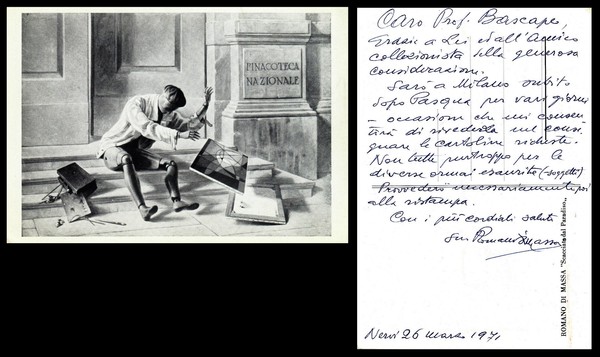 PINACOTECA
NAZIONALE
Caro Prof. Bascapè,
Grazie a Lei e all'Amico
collezionista della generosa
considerazione.
Sarò a Milano subito
dopo Pasqua per vari giorni
– occasioni che mi consen-
tirà di rivederla nel conse-
gnare le cartoline richieste.
Non tutte purtroppo per le
diverse ormai esaurite (-soggetti)
Provvederò necessariamente poi
alla ristampa.
Con i più cordiali saluti
Suo Romano di Massa
Nervi 26 marzo 1971
ROMANO DI MASSA "Scacciata dal Paradiso„